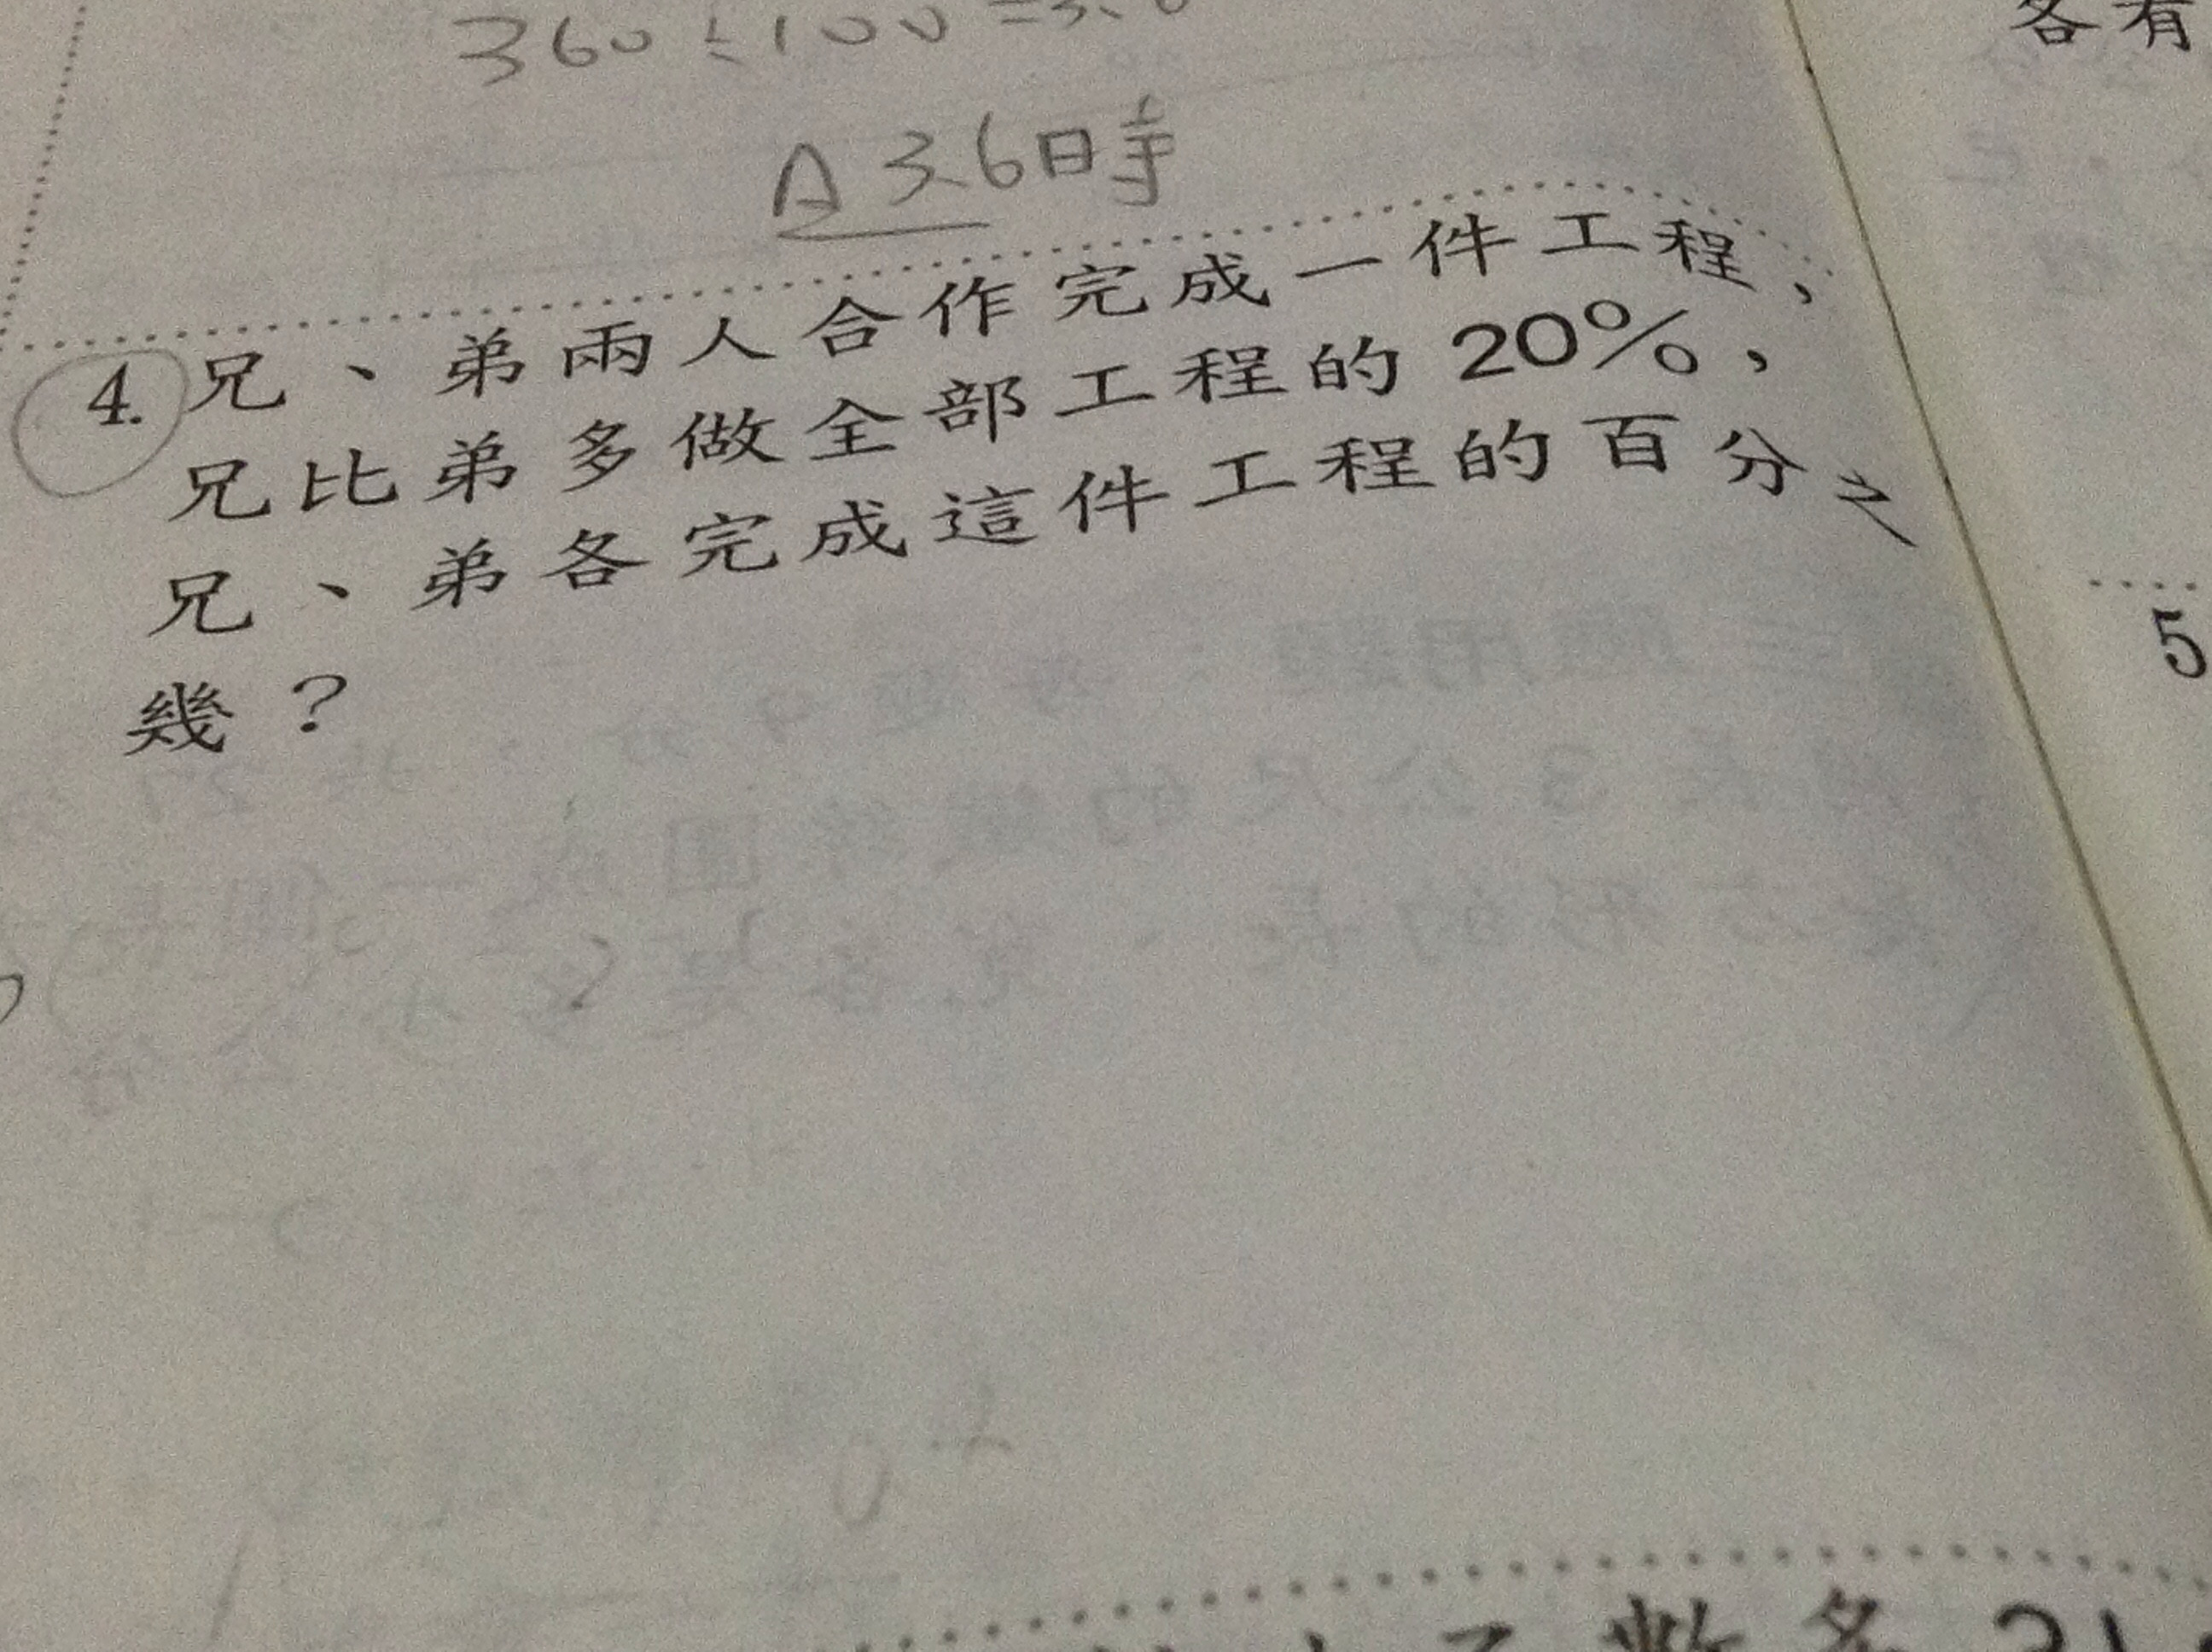 360÷100=3.6
A 3.6時
4. 兄、弟兩人合作完成一件工程，
兄比弟多做全部工程的20%，
兄、弟各完成這件工程的百分之
幾？
各有
5